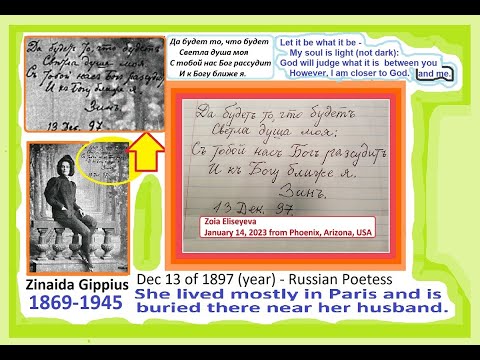 Да будетъ то, что будетъ
Свѣтла душа моя
Съ Тобой насъ Богъ разсудитъ
И къ Богу ближе я.
Зинъ.
13 Дек. 97.
Да будет то, что будет
Светла душа моя
С тобой нас Бог рассудит
И к Богу ближе я.
Let it be what it be -
My soul is light (not dark):
God will judge what it is between you
However, I am closer to God. and me.
Да будетъ то, что будетъ
Светла душа моя;
Съ Тобой насъ Богъ разсудитъ
И къ Богу ближе я.
Зинъ.
13 Дек. 97.
Zoia Eliseyeva
January 14, 2023 from Phoenix, Arizona, USA
Zinaida Gippius
1869-1945
Dec 13 of 1897 (year) - Russian Poetess
She lived mostly in Paris and is
buried there near her husband.